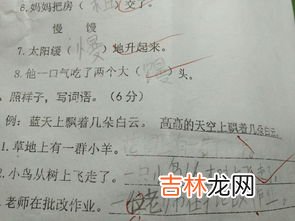 6.妈妈把房(租)交了。
慢 馒
7.太阳缓(慢)地升起来。
8.他一口气吃了两个大(馒)头。
照样子，写词语。(6分)
例：蓝天上飘着几朵白云。 高高的天空上飘着几朵白云
1.草地上有一群小羊。
2.小鸟从树上飞走了。 一只小鸟
老师在批改作业。 一位老师在
吉林龙网